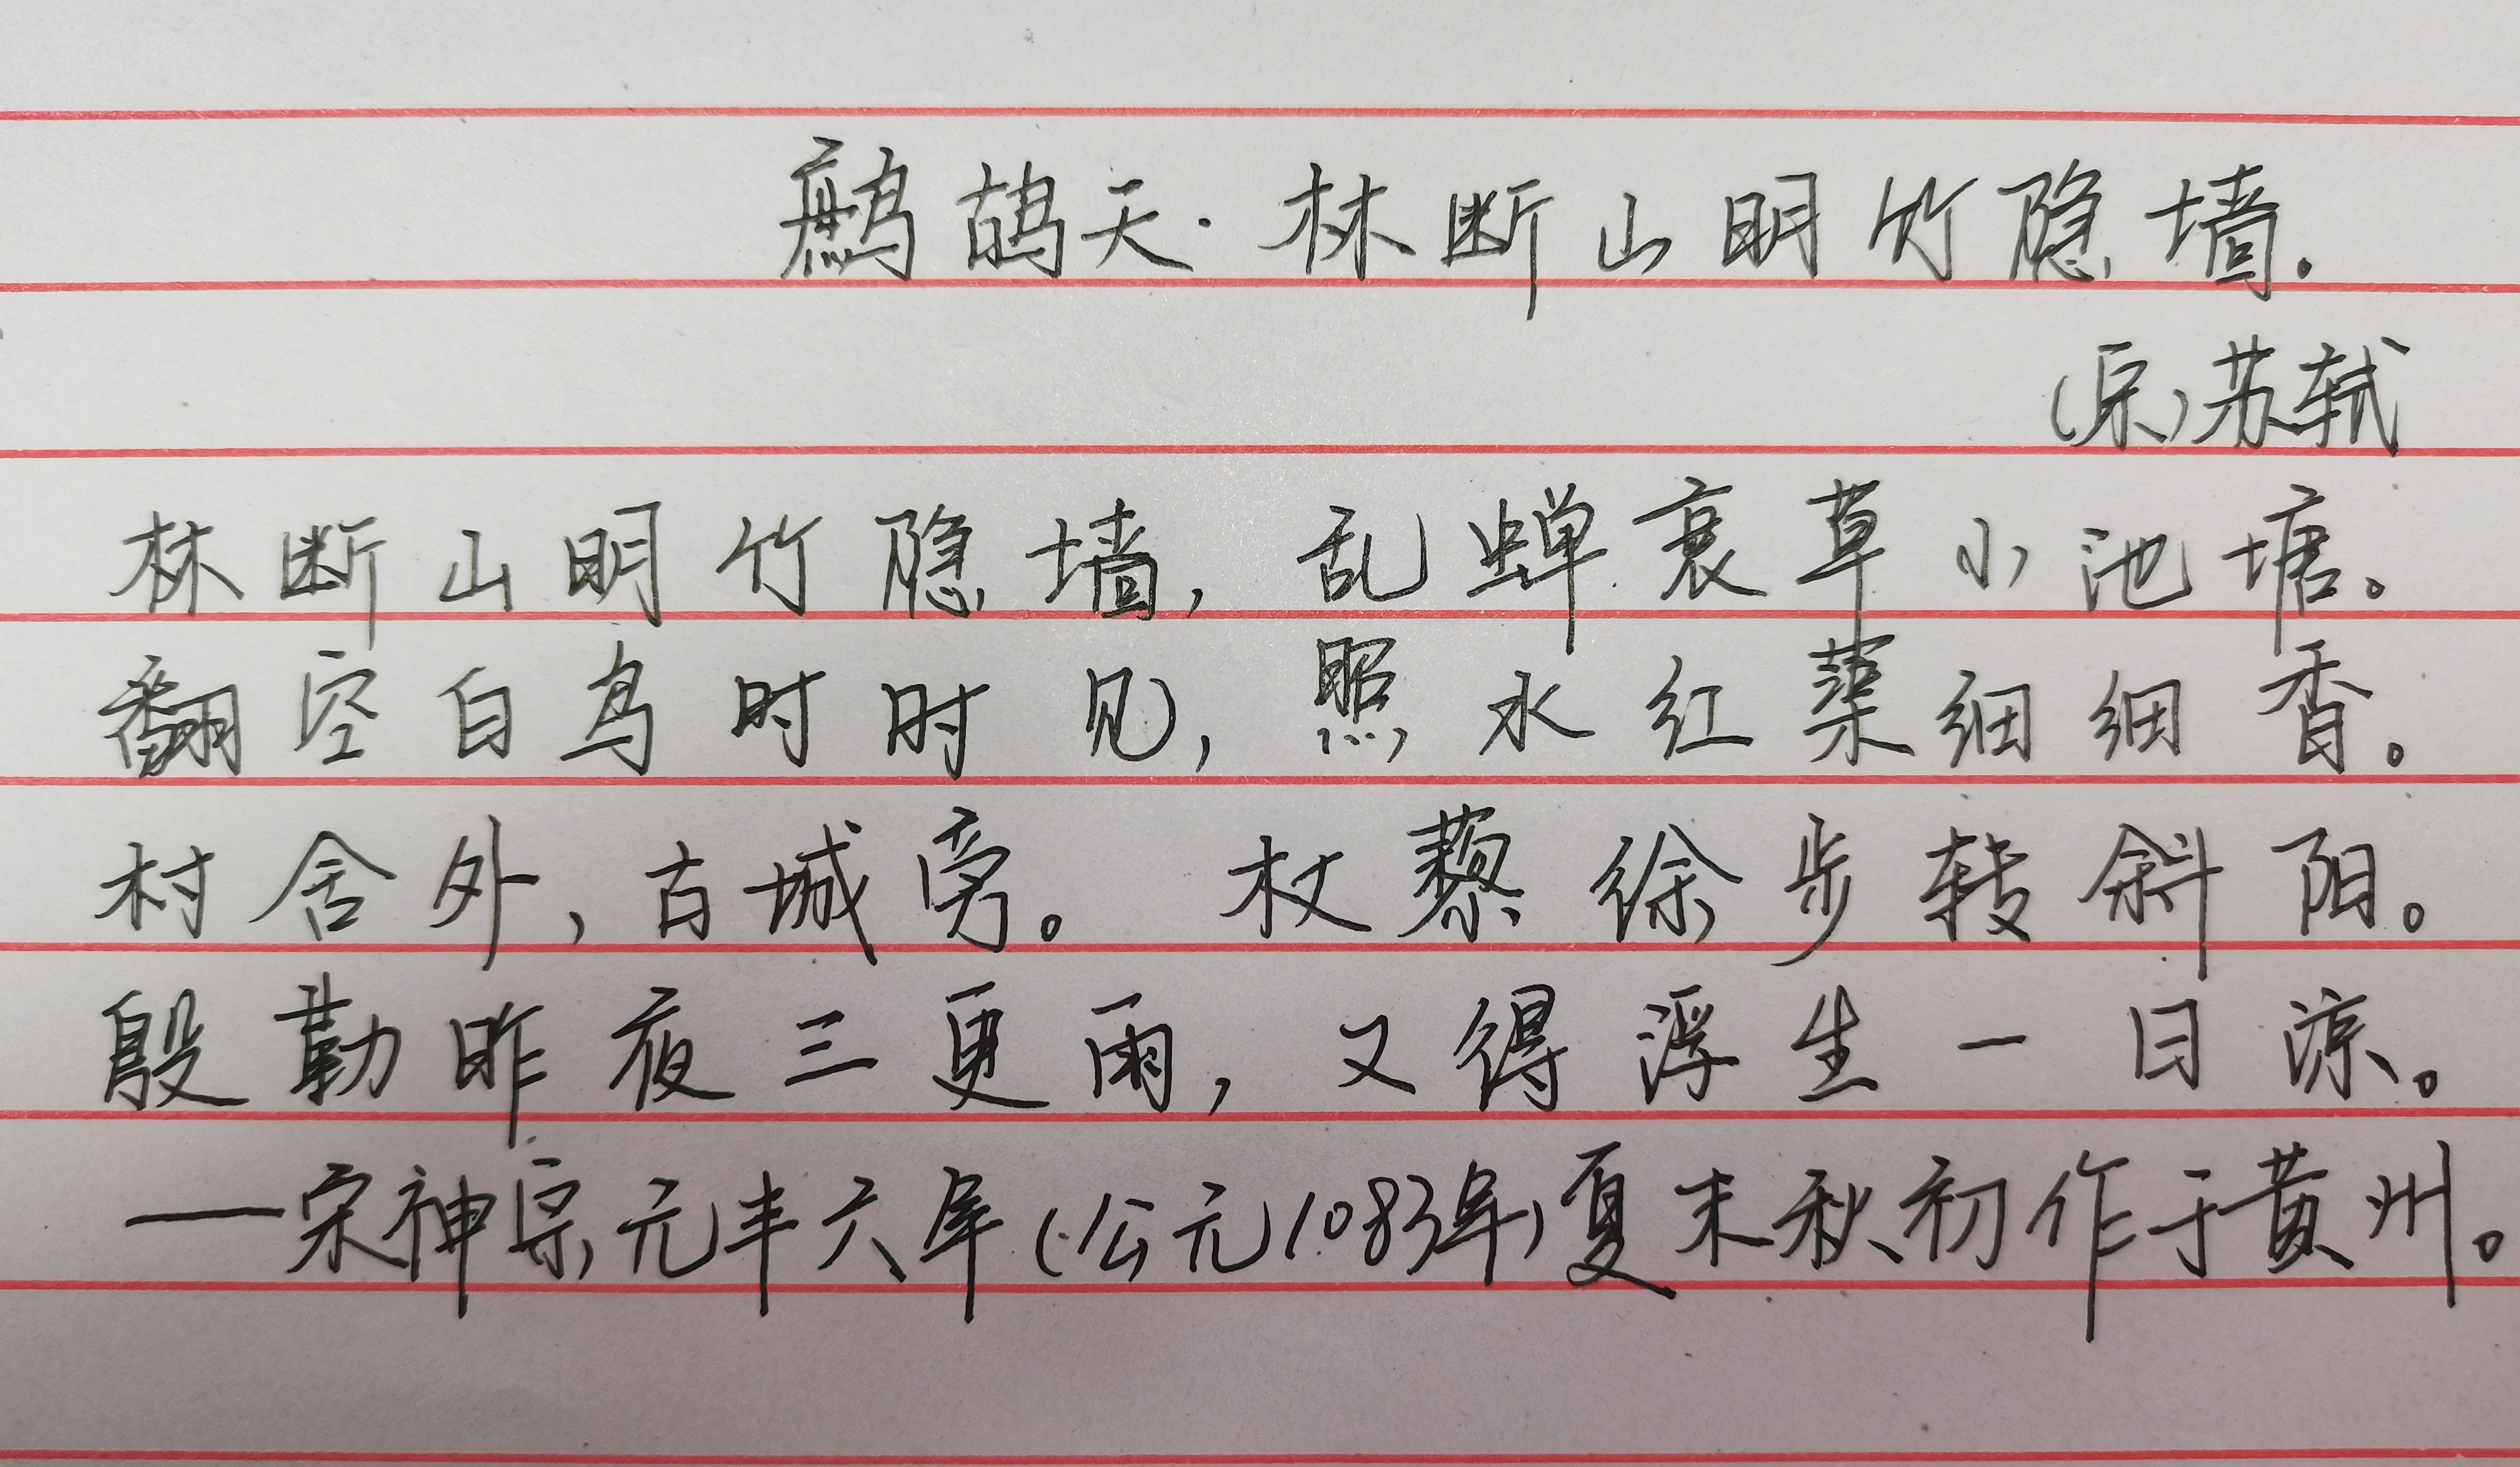 鹧鸪天·林断山明竹隐墙.
(宋)苏轼
林断山明竹隐墙,乱蝉衰草小池塘。
翻空白鸟时时见,照水红蕖细细香。
村舍外,古城旁。杖藜徐步转斜阳。
殷勤昨夜三更雨,又得浮生一日凉。
——宋神宗元丰六年(公元1083年)夏末秋初作于黄州。